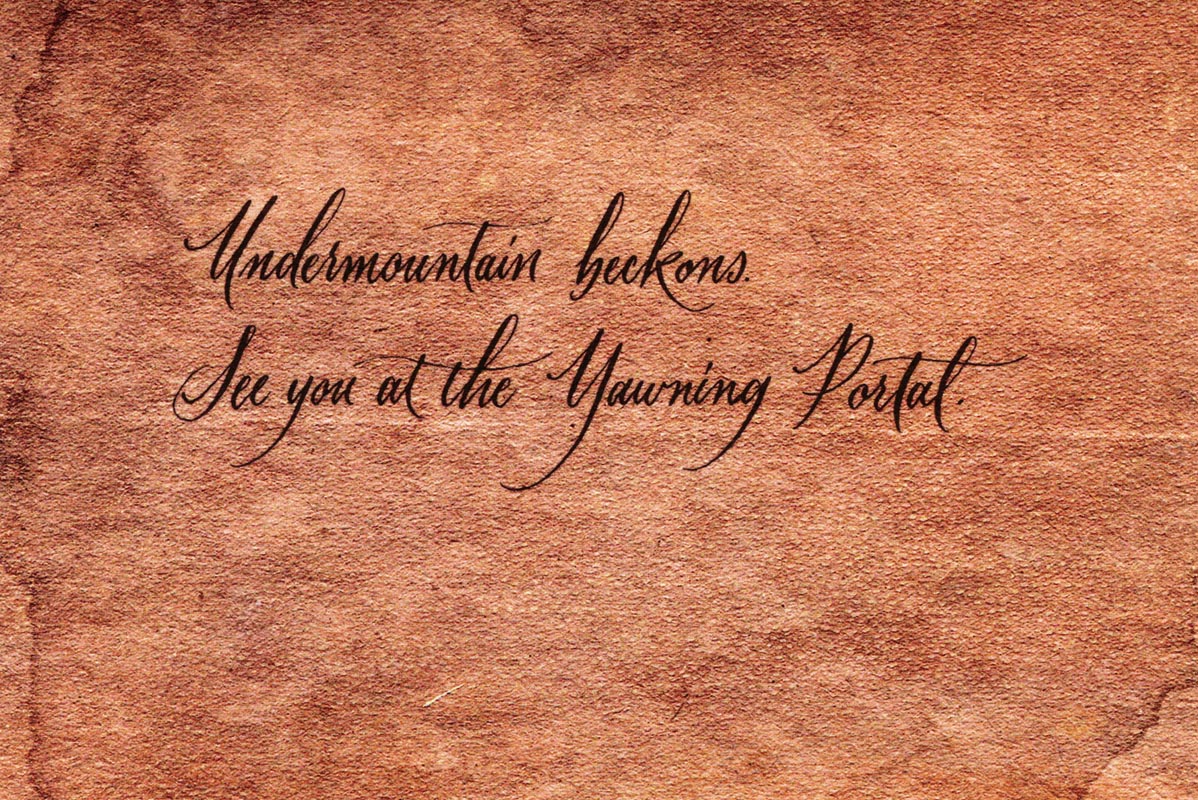 Undermountain beckons.
See you at the Yawning Portal.